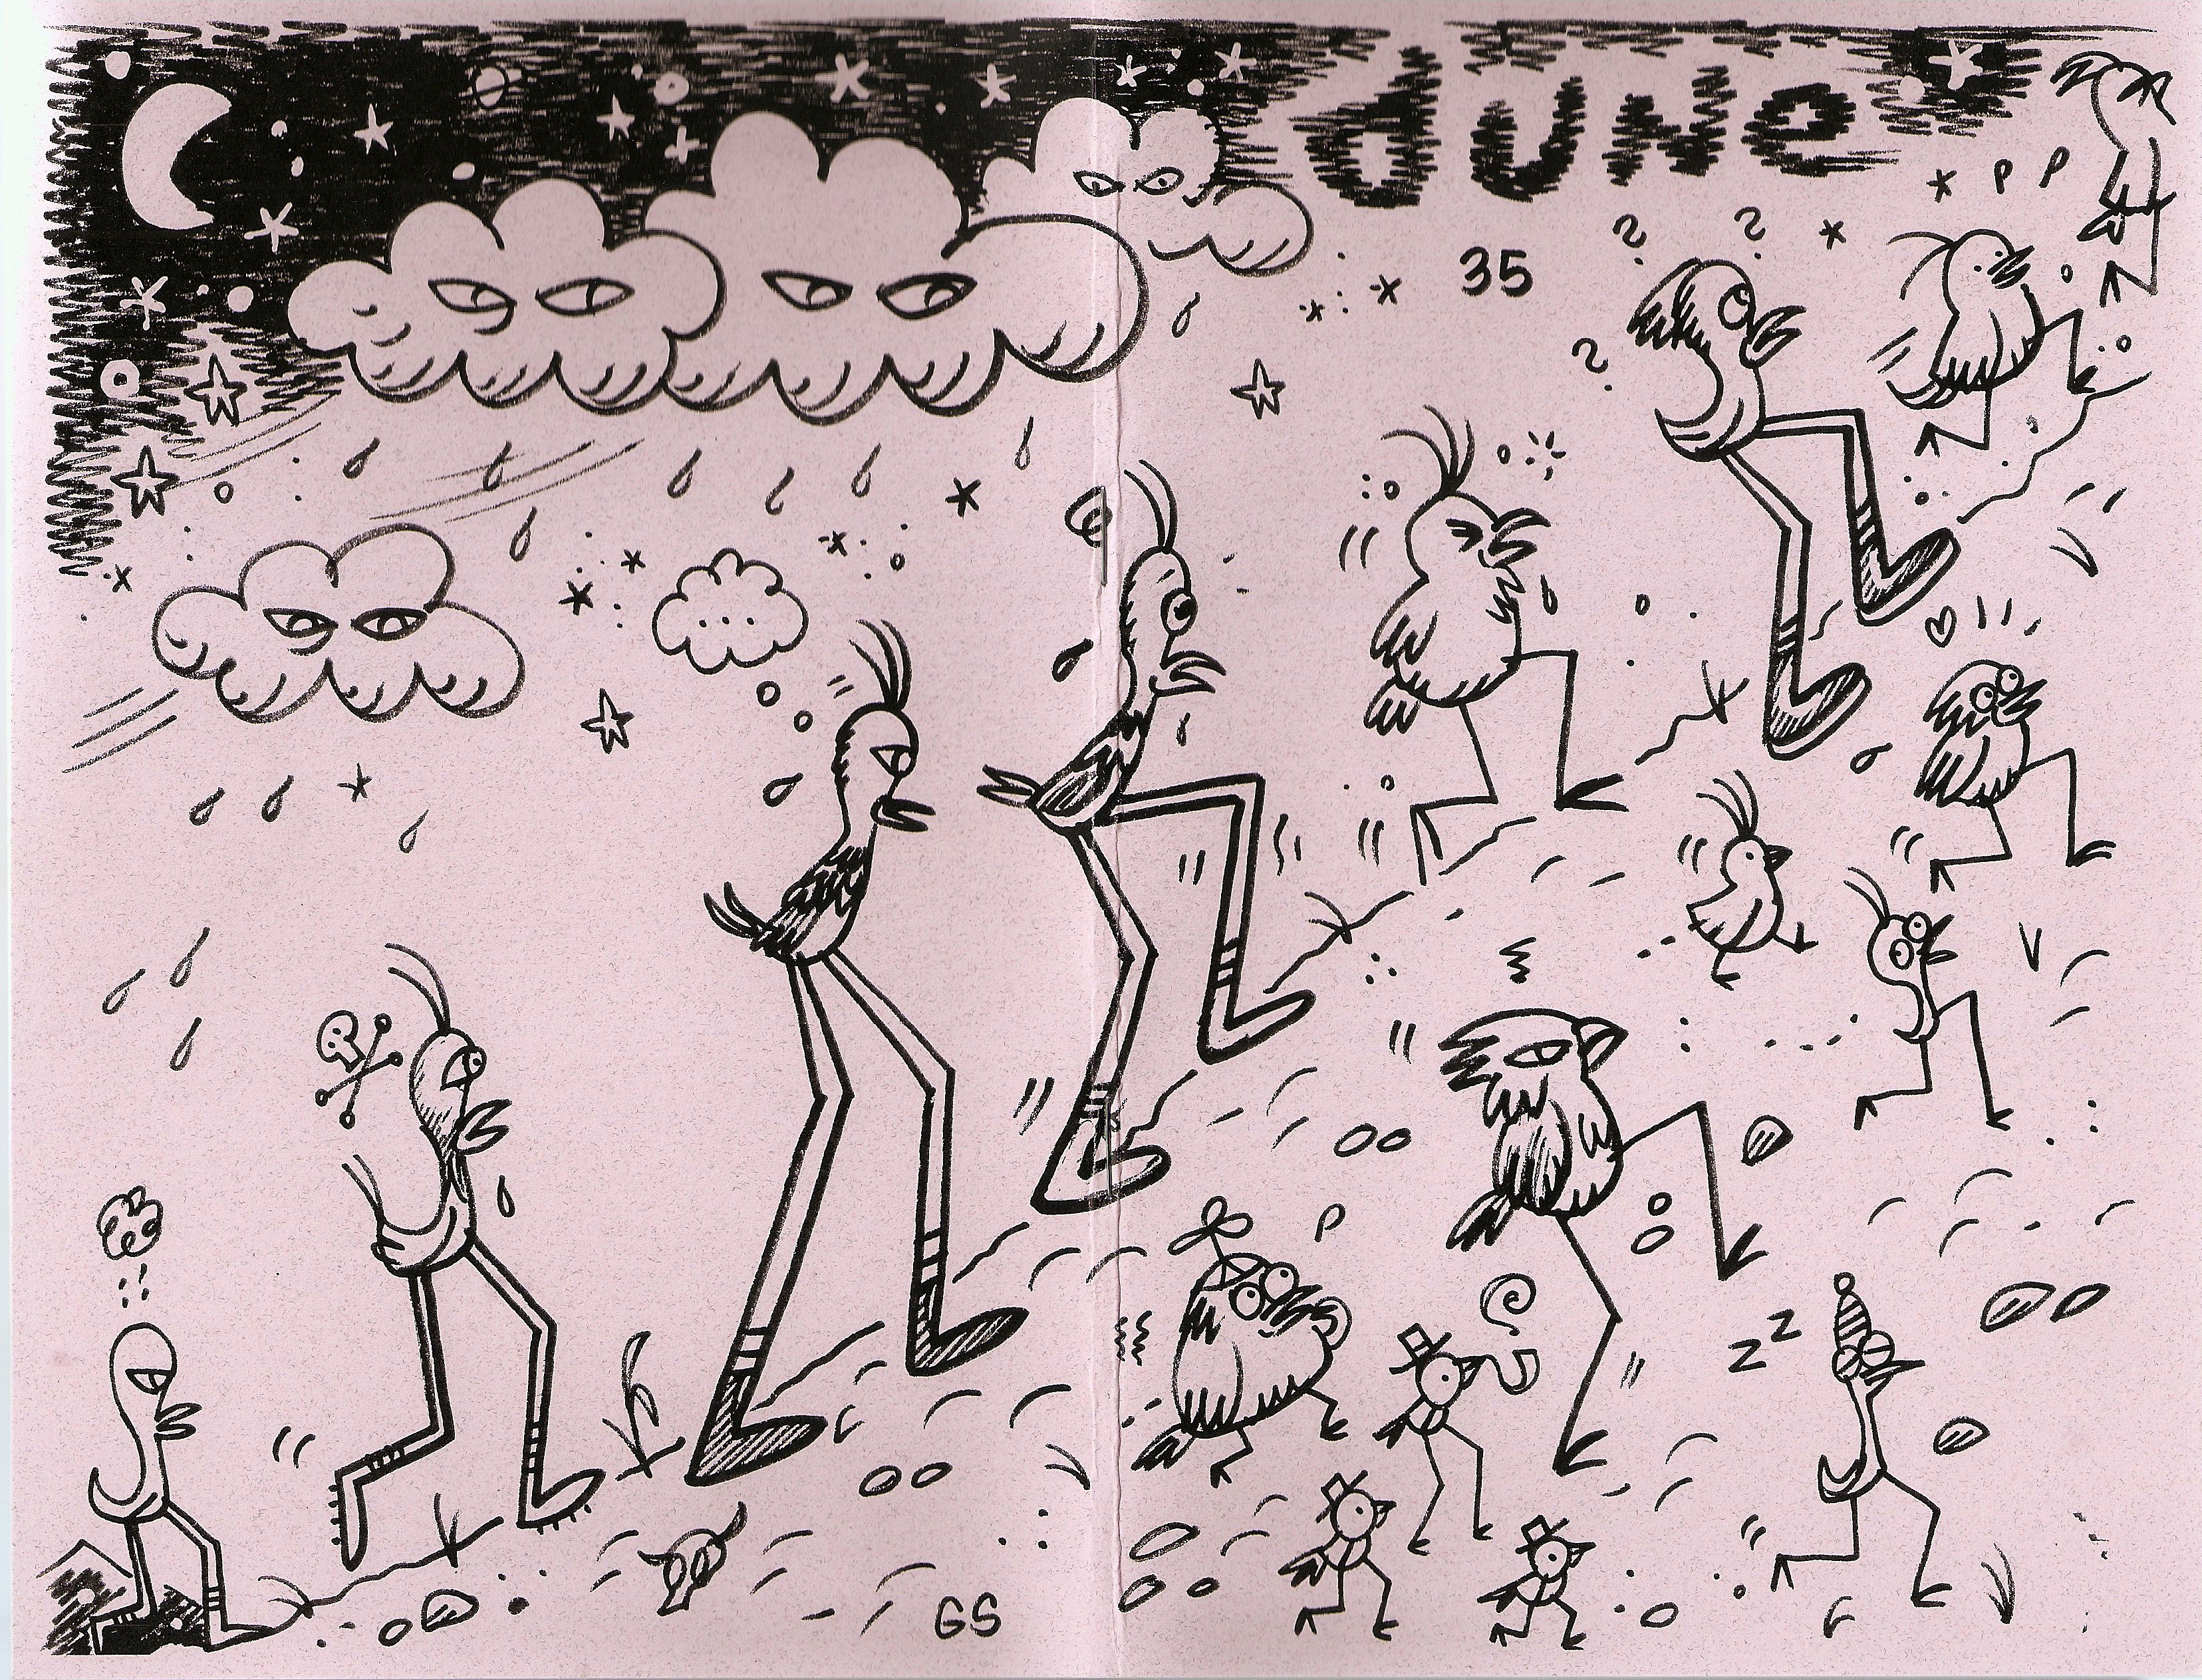 dUNe
35
zz
GS